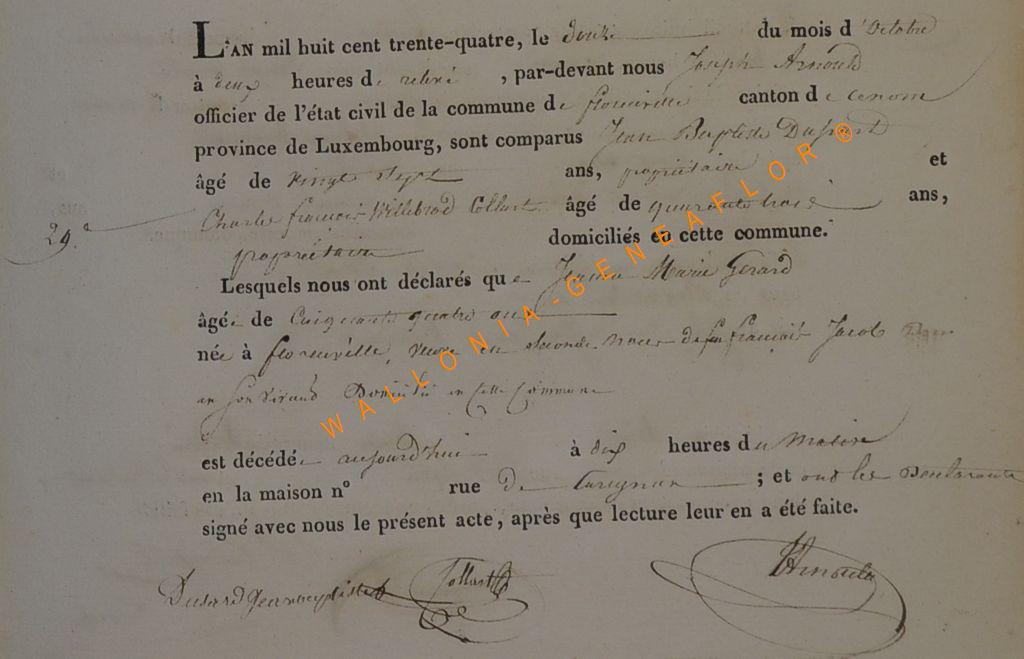 L'AN mil huit cent trente-quatre, le douze du mois d'Octobre
à deux heures de relevé, par-devant nous Joseph Arnould
officier de l'état civil de la commune de florenville canton de
province de Luxembourg, sont comparus Jean Baptiste Dusart
âgé de vingt sept ans, propriétaire et
Charle françois Willebrod Collart âgé de quarante trois ans,
29.e
propriétaire domiciliés en cette commune.
Lesquels nous ont déclarés que Jeanne Marie Gerard
âgée de Cinquante quatre ans
née à florenville, veuve en seconde noces de feu françois Jacob
en son vivant Domicilié en cette Commune
est décédée aujourd'hui à dix heures du Matin
en la maison n° rue de Carignan ; et ont les
signé avec nous le présent acte, après que lecture leur en a été faite.
Dusard Jean Collart Arnould
WALLONIA-GENEAFLOR ®